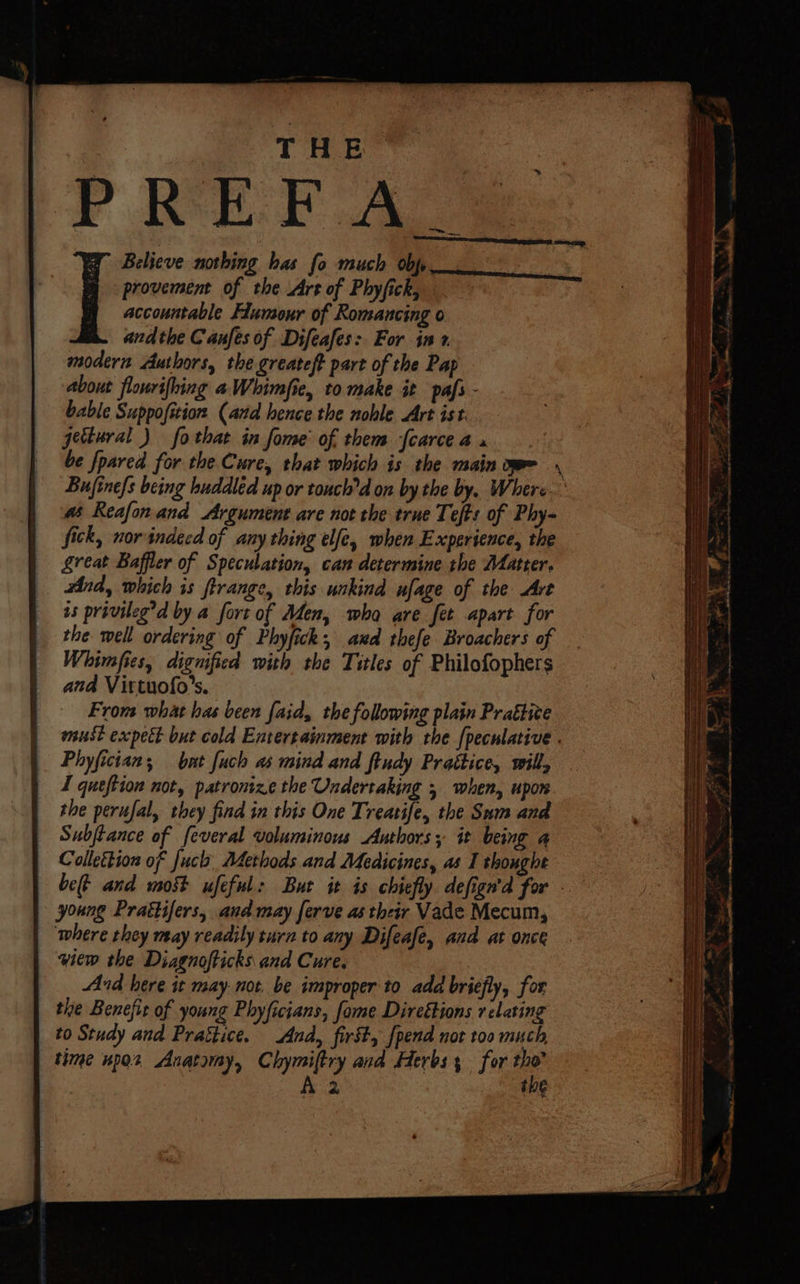 THE
PREFA
I Believe nothing has ſo much
provement of the Art of Phyſick,
accountable Humour of Romancing o
and the Cauſes of Diſeaſes: For in
modern Authors, the greateſt part of the Pap
about flouriſhing a Whimſie, to make it paſs
bable Suppoſition (and hence the noble Art is
jectural) ſo that in ſome of them ſcarce a
be ſpared for the Cure, that which is the main
Buſineſs being huddled up or touch'd on by the by. Where
as Reaſon and Argument are not the true Teſts of Phy-
ſick, nor indeed of any thing elſe, when Experience, the
great Baffler of Speculation, can determine the Matter.
And, which is ſtrange, this unkind uſage of the Art
is privileg'd by a ſort of Men, who are ſet apart for
the well ordering of Phyſick; and theſe Broachers of
Whimſies, dignified with the Titles of Philoſophers
and Virtuoſo's.
From what has been ſaid, the following plain Practice
must expect but cold Entertainment with the ſpeculative
Phyſician; but ſuch as mind and ſtudy Practice, will,
I queſtion not, patronize the Undertaking; when, upon
the peruſal, they find in this One Treatiſe, the Sum and
Subſtance of ſeveral voluminous Authors; it being a
Collection of ſuch Methods and Medicines, as I thought
beſt and most uſeful: But it is chiefly deſign'd for
young Practiſers, and may ſerve as their Vade Mecum,
where they may readily turn to any Diſeaſe, and at once
view the Diagnoſticks and Cure.
And here it may not be improper to add briefly, for
the Benefit of young Phyſicians, ſome Directions relating
to Study and Practice. And, first, ſpend not too much
time upon Anatomy, Chymiſtry and Herbs; for tho'
A 2 the